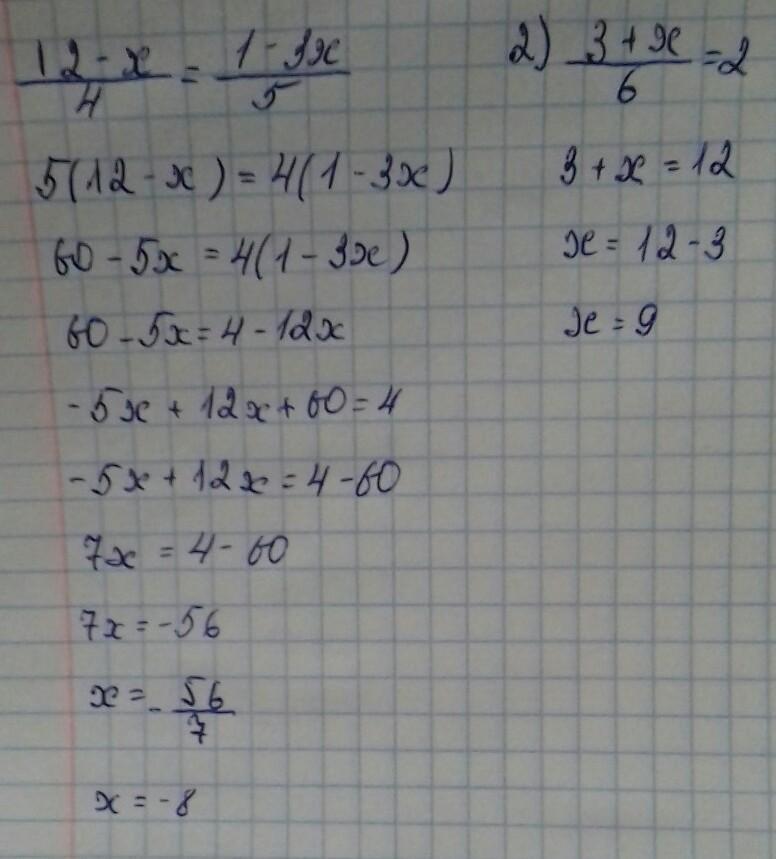 (12-x)/4 = (1-3x)/5
5(12-x) = 4(1-3x)
60-5x = 4(1-3x)
60-5x = 4-12x
-5x+12x+60=4
-5x+12x=4-60
7x = 4-60
7x = -56
x = -56/7
x = -8
2) (3+x)/6 = 2
3+x = 12
x = 12-3
x = 9